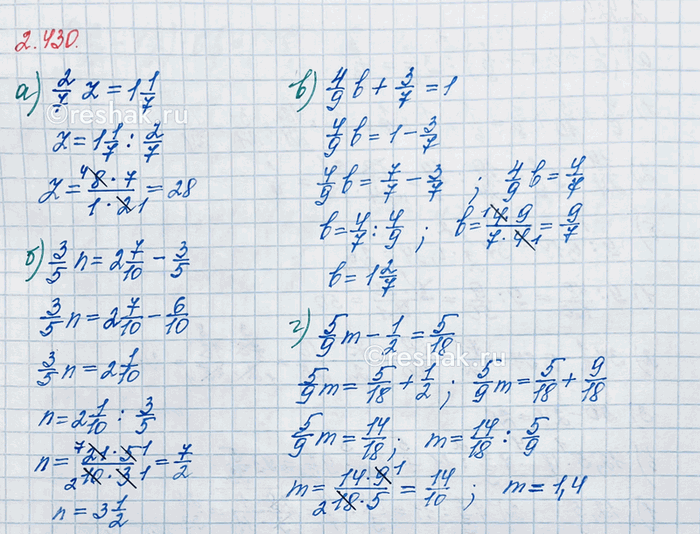 2.430.
а) 2/7 z = 1 1/7
z = 1 1/7 : 2/7
z = ⁴8 · 7 / 1 · 2 1 = 28
б) 3/5 n = 2 7/10 − 3/5
3/5 n = 2 7/10 − 6/10
3/5 n = 2 1/10
n = 2 1/10 : 3/5
n = ⁷21 · 5 ¹ / ₂10 · 3 ₁ = 7/2
n = 3 1/2
в) 4/9 b + 3/7 = 1
4/9 b = 1 − 3/7
4/9 b = 7/7 − 3/7 ; 4/9 b = 4/7
b = 4/7 : 4/9 ; b = ¹4 · 9 / 7 · 4 ₁ = 9/7
b = 1 2/7
г) 5/9 m − 1/2 = 5/18
5/9 m = 5/18 + 1/2 ; 5/9 m = 5/18 + 9/18
5/9 m = 14/18 ; m = 14/18 : 5/9
m = 14 · 9 ¹ / ₂18 · 5 = 14/10 ; m = 1,4
©reshak.ru
©reshak.ru